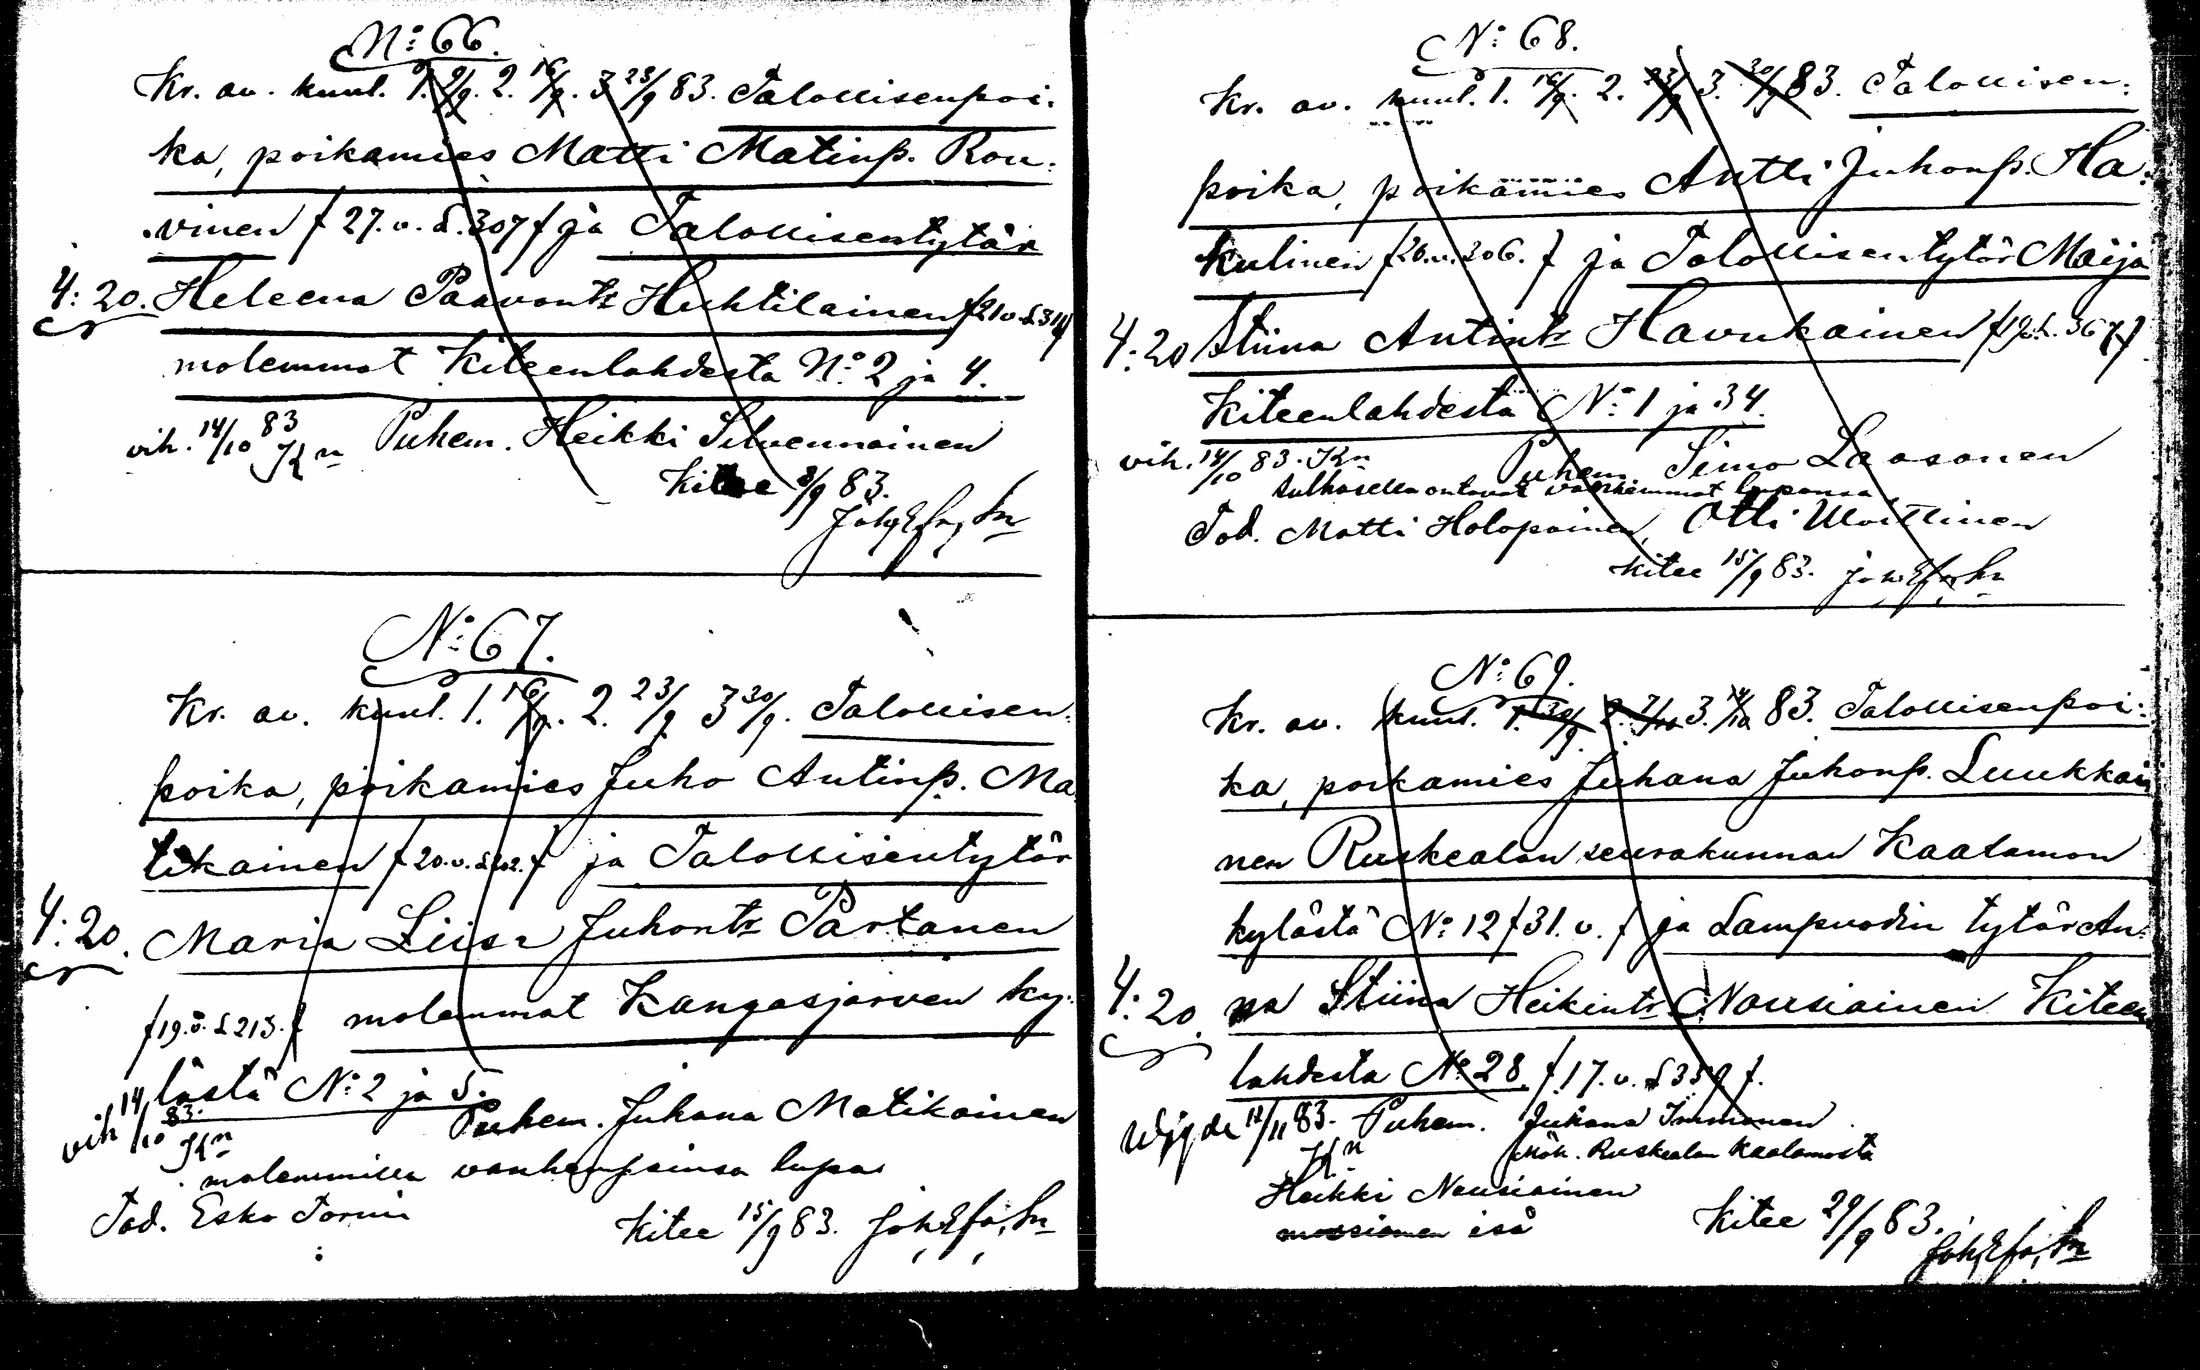 N:o 66.
Kr. av. kuul. 1. 9/9. 2. 16/9. 3 23/9 83. Talollisenpoi:
ka, poikamies Matti Matinp. Rou:
vinen f 27. v. S. 307 f ja Talollisentytär
4: 20. Heleena Paavontr Huhtilainen f 21 v. S 314 f
molemmat Kiteenlahdesta N:o 2 ja 4.
vih. 14/10 83 Puhem. Heikki Silvennoinen
Kitee 8/9 83.
N:o 67.
Kr. av. kuul. 1. 16/9. 2. 23/9 3 30/9. Talollisen:
poika, poikamies Juho Antinp. Ma
tikainen f 20. v. S 202. f ja Talollisentytär
4: 20. Maria Liisa Juhontr Partanen
f 19. v. S 213. f molemmat Kangasjärven ky:
lästä N:o 2 ja 5.
vih 14/10 83. Puhem. Juhana Matikainen
molemmilla vanhempainsa lupa
Tod. Esko Tormi
Kitee 15/9 83.
N:o 68.
Kr. av. kuul. 1. 16/9. 2. 23/9 3. 30/9 83. Talollisen:
poika, poikamies Antti Juhonp. Ha:
kulinen f 26. v. 206. f ja Talollisentytär Maija
4: 20 Stiina Antintr Havukainen f 19. S. 367 f
Kiteenlahdesta N:o 1 ja 34.
vih. 14/10 83. Puhem. Simo Laasonen
sulhasella ontavat vanhemmat lupansa
Tod. Matti Holopainen, Otti Woittinen
Kitee 15/9 83.
N:o 69.
Kr. av. kuul. 1. 30/9 2. 7/10 3. 14/10 83. Talollisenpoi:
ka, poikamies Juhana Juhonp. Luukkai
nen Ruskealan seurakunnan Kaalamon
kylästä N:o 12 f 31. v. f ja Lampuodin tytär An:
4: 20. na Stiina Heikintr Nousiainen Kiteen
lahdesta N:o 28. f 17. v. S 359 f.
Wigde 11/11 83. Puhem. Juhana Immonen
Mök. Ruskealan Kaalamosta
Heikki Nousiainen
morsiamen isä
Kitee 29/9 83.